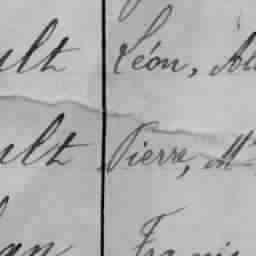 ult Léon, Al
ult Pierre, M
an Franci